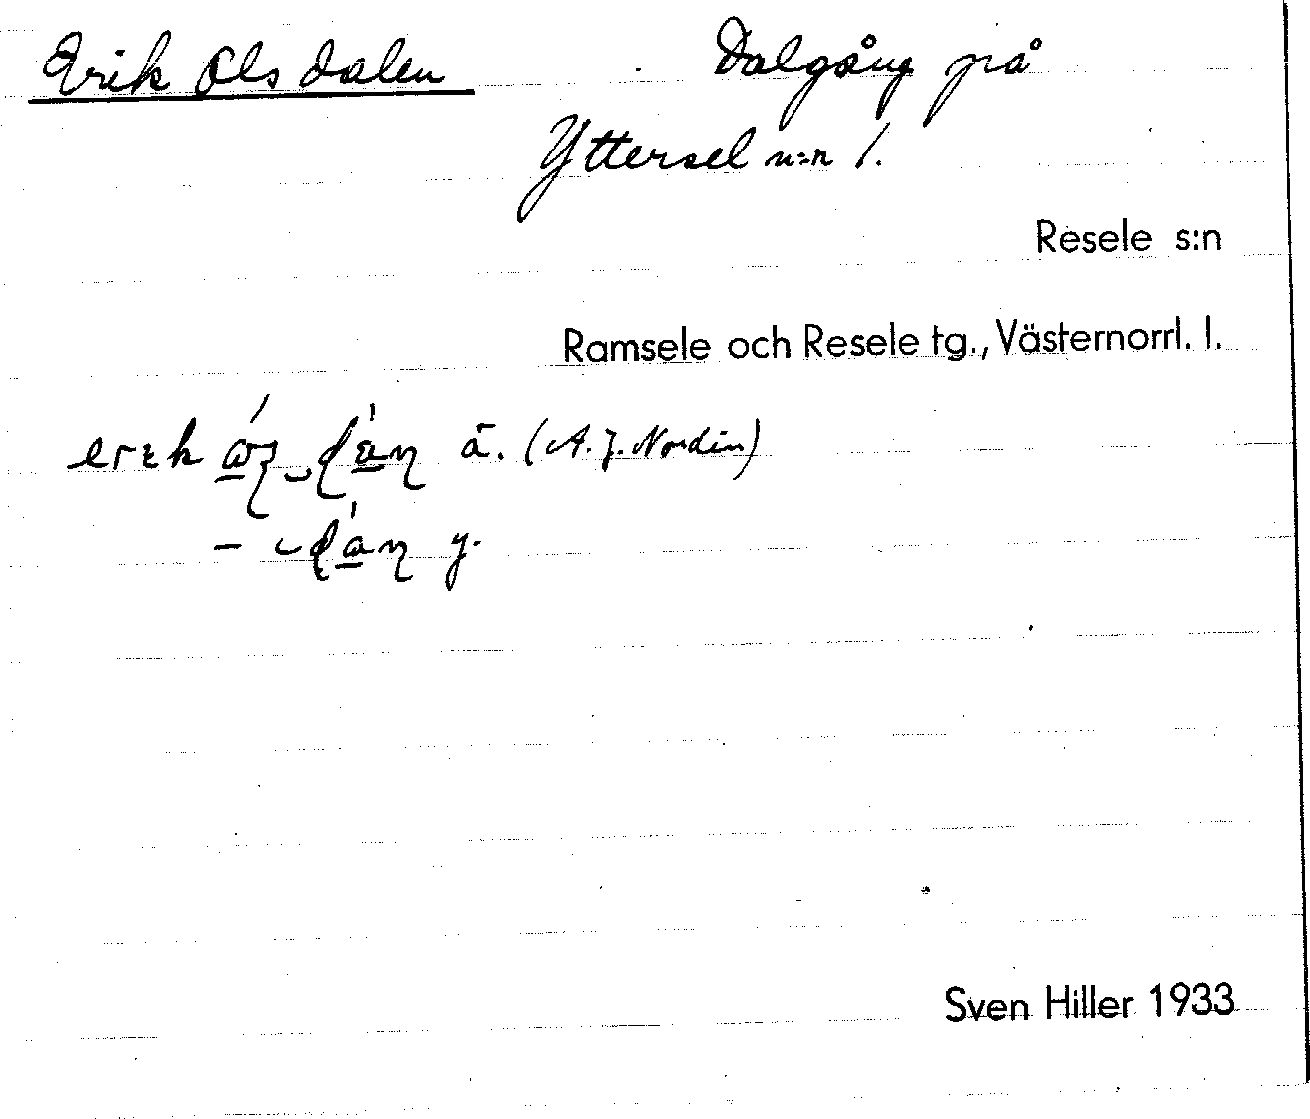 Erik Olsdalen Dalgång på
Yttersel n:r 1.
Resele s:n
Ramsele och Resele tg., Västernorrl. l.
ä. (A. J. Nordin)
y.
Sven Hiller 1933